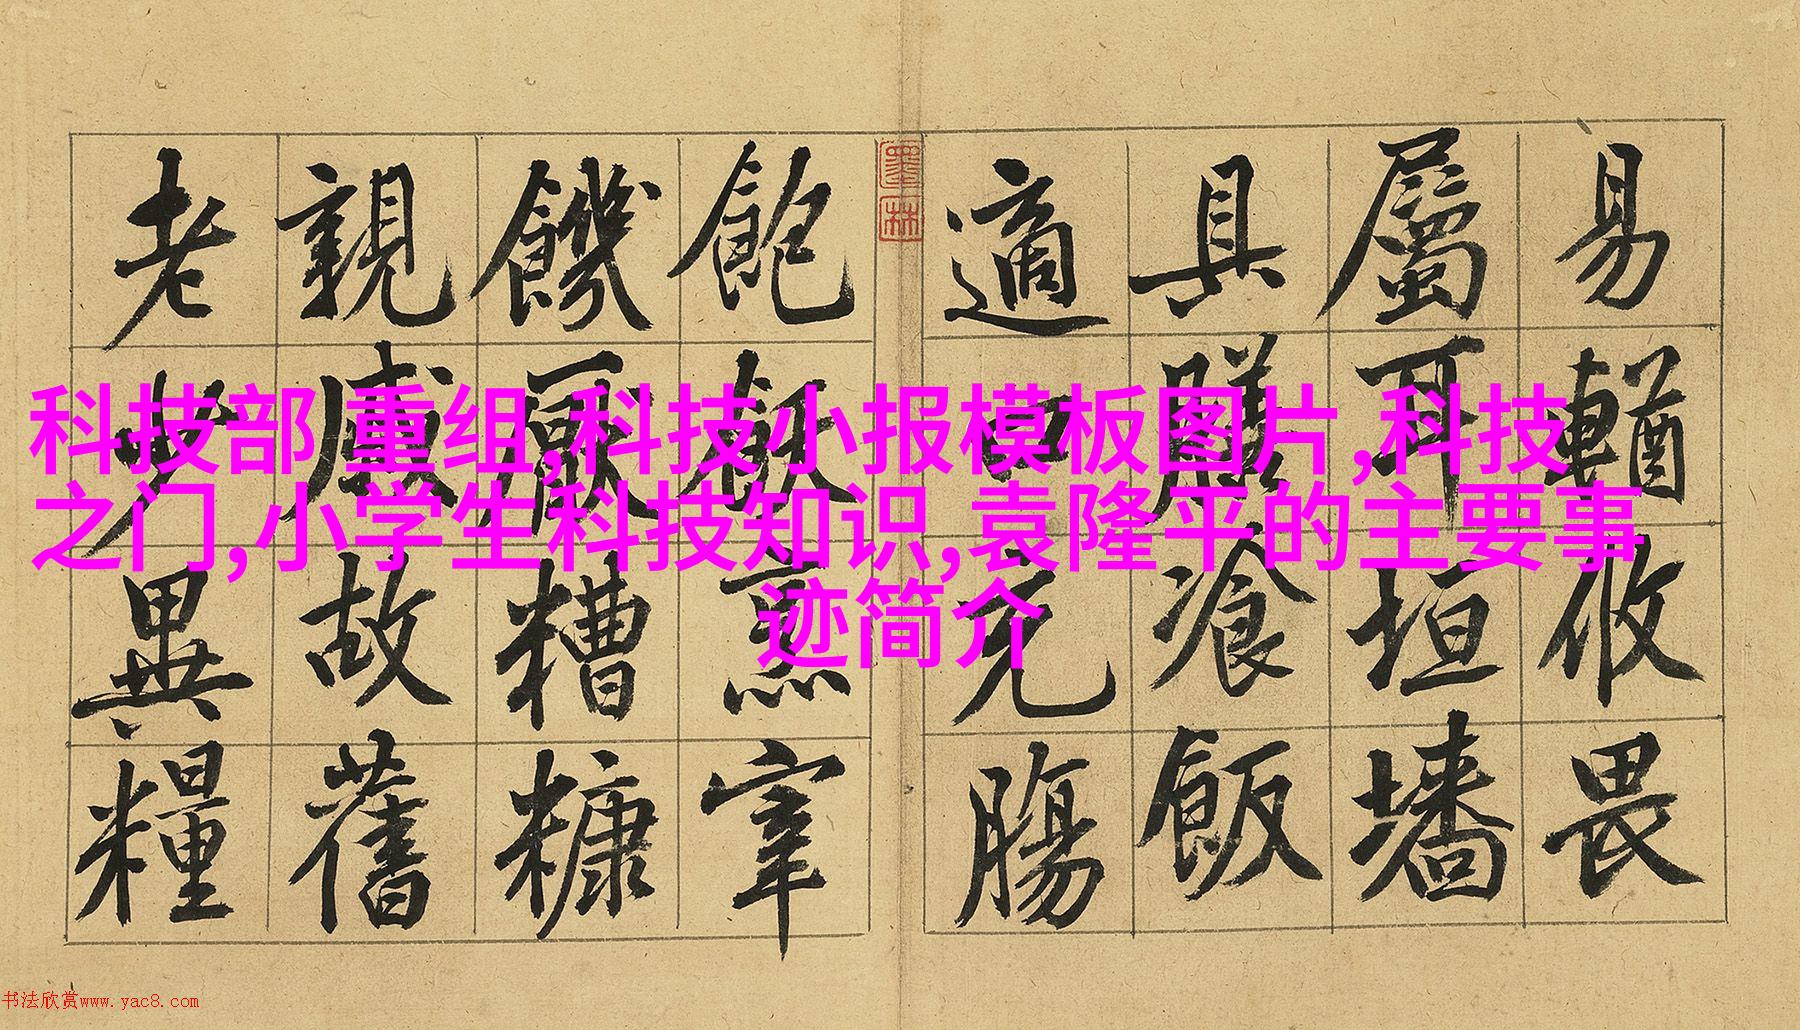 易輶攸畏
屬耳垣墻
具膳飡飯
適口充腸
墨林
飽飫烹宰
饑厭糟糠
親戚故舊
老少異糧
科技部 重组,科技小报模板图片,科技
之门,小学生科技知识,袁隆平的主要事
迹简介
书法欣赏www.yac8.com